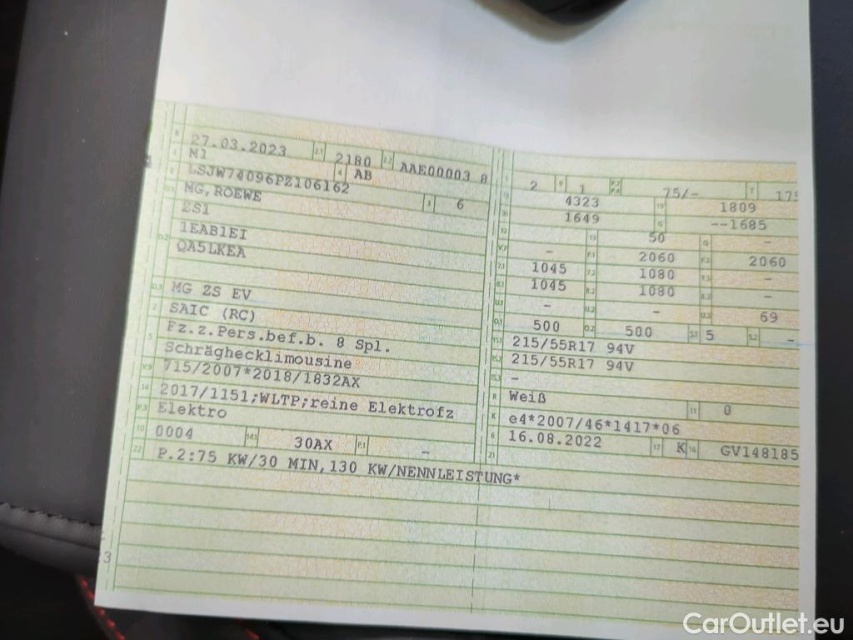 27.03.2023 2180 AAE00003 8
M1 AB
LSJW74096PZ106162
MG,ROEWE 6
ZS1
1EAB1EI
QA5LKEA
MG ZS EV
SAIC (RC)
Fz.z.Pers.bef.b. 8 Spl.
Schräghecklimousine
715/2007*2018/1832AX
2017/1151;WLTP;reine Elektrofz
Elektro
0004 30AX –
P.2:75 KW/30 MIN,130 KW/NENNLEISTUNG*
2 1 75/- 175
4323 1809
1649 --1685
– 50 –
– 2060 2060
1045 1080 –
1045 1080 –
– – 69
500 500 5 –
215/55R17 94V
215/55R17 94V
–
Weiß 0
e4*2007/46*1417*06
16.08.2022 K GV148185
3
CarOutlet.eu